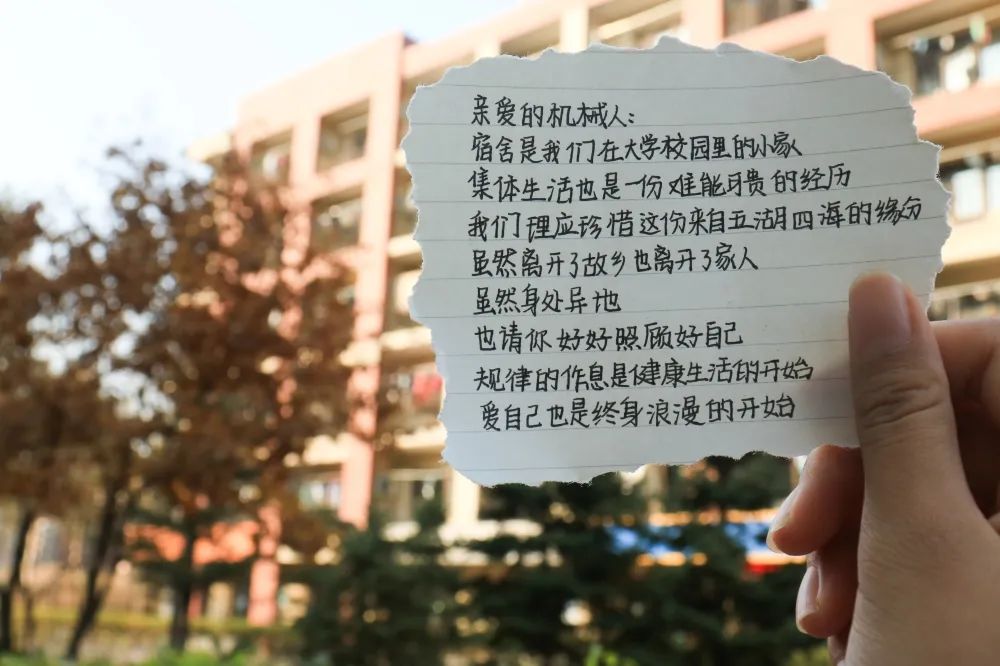 亲爱的机械人:
宿舍是我们在大学校园里的小家
集体生活也是一份难能可贵的经历
我们理应珍惜这份来自五湖四海的缘分
虽然离开了故乡也离开了家人
虽然身处异地
也请你好好照顾好自己
规律的作息是健康生活的开始
爱自己也是终身浪漫的开始